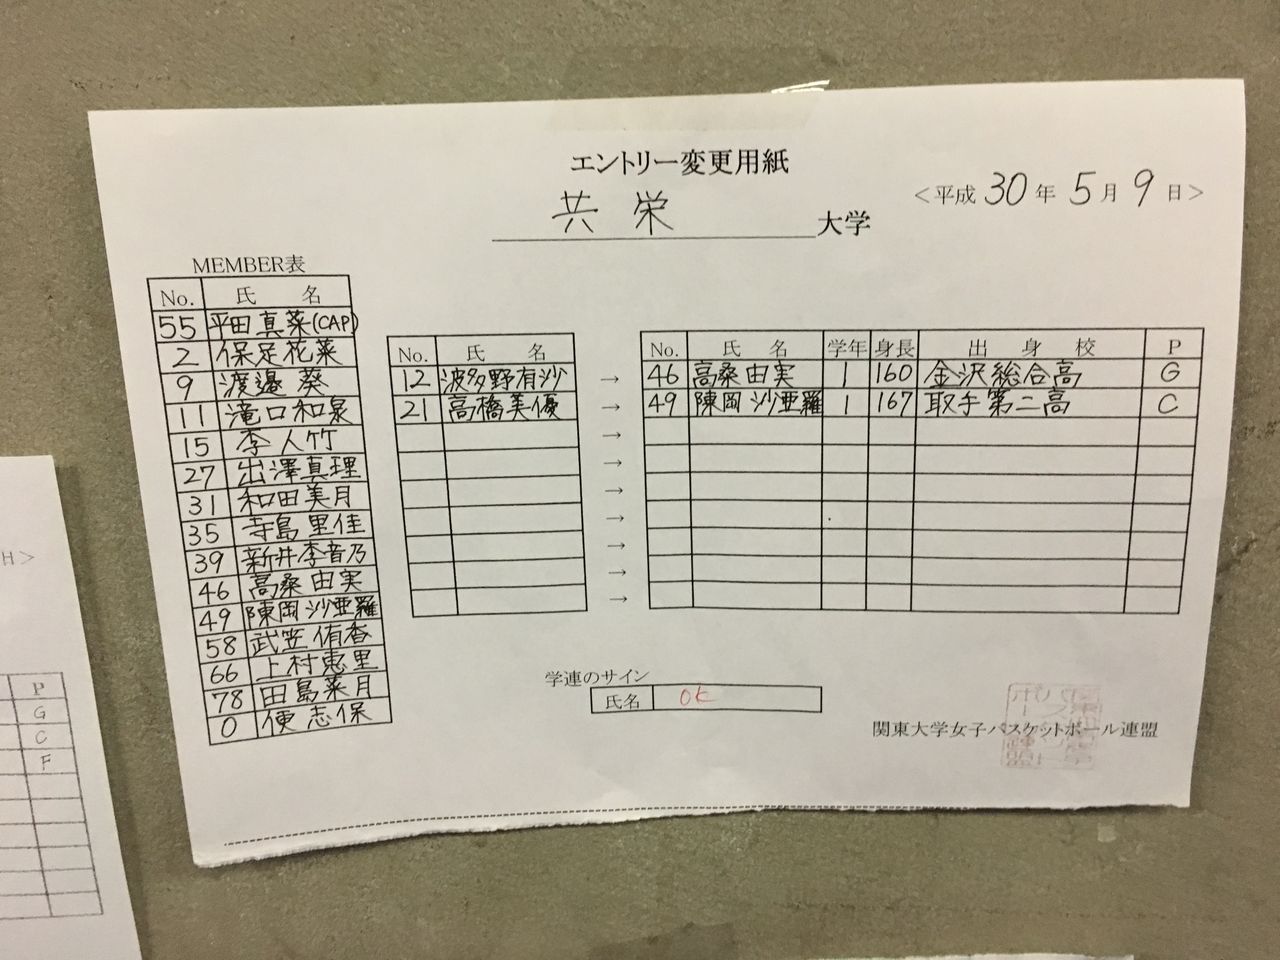 エントリー変更用紙
<平成 30 年 5 月 9 日>
共栄 大学
MEMBER表
No. 氏 名
55 平田真菜(CAP)
2 保足花菜
9 渡邉 葵
11 滝口和泉
15 李人竹
27 出澤真理
31 和田美月
35 寺島里佳
39 新井李音乃
46 高桑由実
49 陳岡沙亜羅
58 武笠侑香
66 上村恵里
78 田島菜月
0 便志保
No. 氏 名 No. 氏 名 学年 身長 出身校 P
12 波多野有沙 → 46 高桑由実 1 160 金沢総合高 G
21 高橋美優 → 49 陳岡沙亜羅 1 167 取手第二高 C
→
→
→
→
→
→
→
学連のサイン
氏名 OK
関東大学女子バスケットボール連盟
H>
P
G
C
F